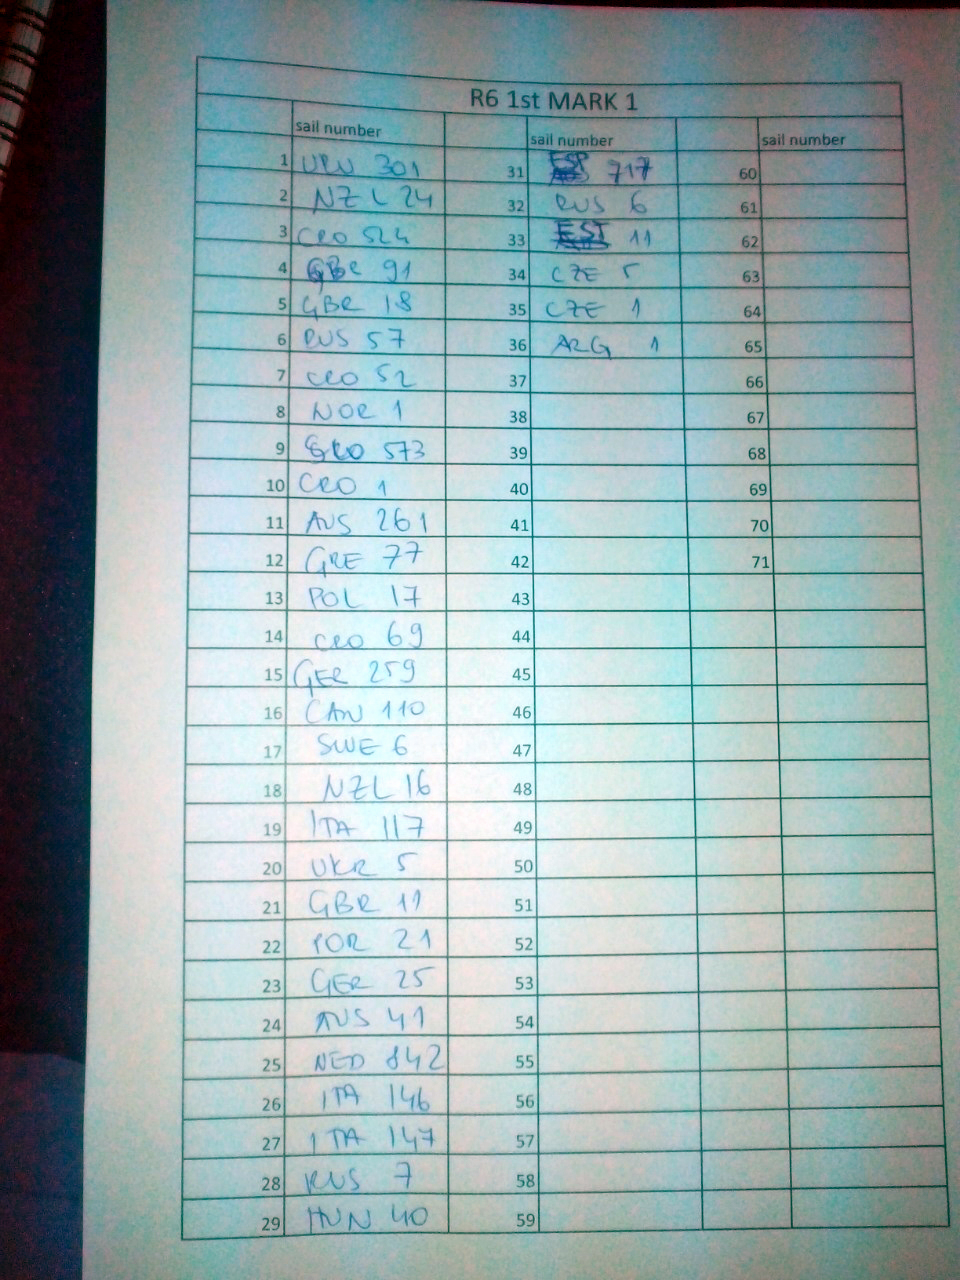 R6 1st MARK 1
sail number sail number sail number
1 301 31 ESP 717 60
2 NZL 24 32 RUS 6 61
3 CRO 524 33 EST 11 62
4 GBR 91 34 CZE 5 63
5 GBR 18 35 CZE 1 64
6 RUS 57 36 ARG 1 65
7 CRO 52 37 66
8 NOR 1 38 67
9 CRO 573 39 68
10 CRO 1 40 69
11 AUS 261 41 70
12 GRE 77 42 71
13 POL 17 43
14 CRO 69 44
15 GER 259 45
16 CAN 110 46
17 SWE 6 47
18 NZL 16 48
19 ITA 117 49
20 UKR 5 50
21 GBR 11 51
22 POR 21 52
23 GER 25 53
24 AUS 41 54
25 NED 842 55
26 ITA 146 56
27 ITA 147 57
28 RUS 7 58
29 HUN 40 59